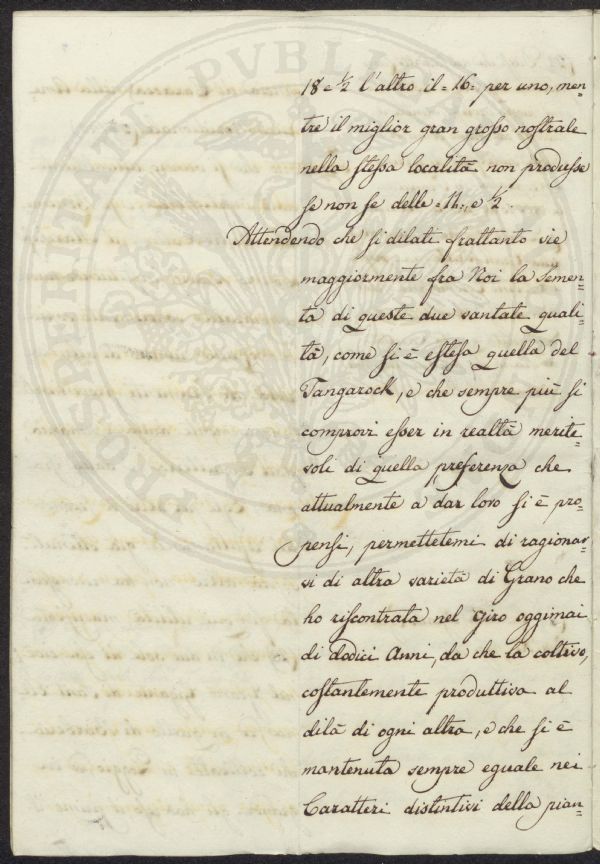 18 e ½ l'altro il =16= per uno, men=
tre il miglior gran grosso nostrale
nella stessa località non produsse
se non se delle =11=, e ½.
Attendendo che si dilati frattanto vie
maggiormente fra Noi la semen=
ta di queste due vantate quali=
tà, come si è estesa quella del
Tangarock, e che sempre più si
comprovi esser in realtà merite=
voli di quella preferenza che
attualmente a dar loro si è pro=
pensi, permettetemi di ragionar
vi di altra varietà di Grano che
ho riscontrata nel giro oggimai
di dodici Anni, da che la coltivo,
costantemente produttiva al
dilà di ogni altra, e che si è
mantenuta sempre eguale nei
Caratteri distintivi della pian=
PVBLICA
PROSPERITATI